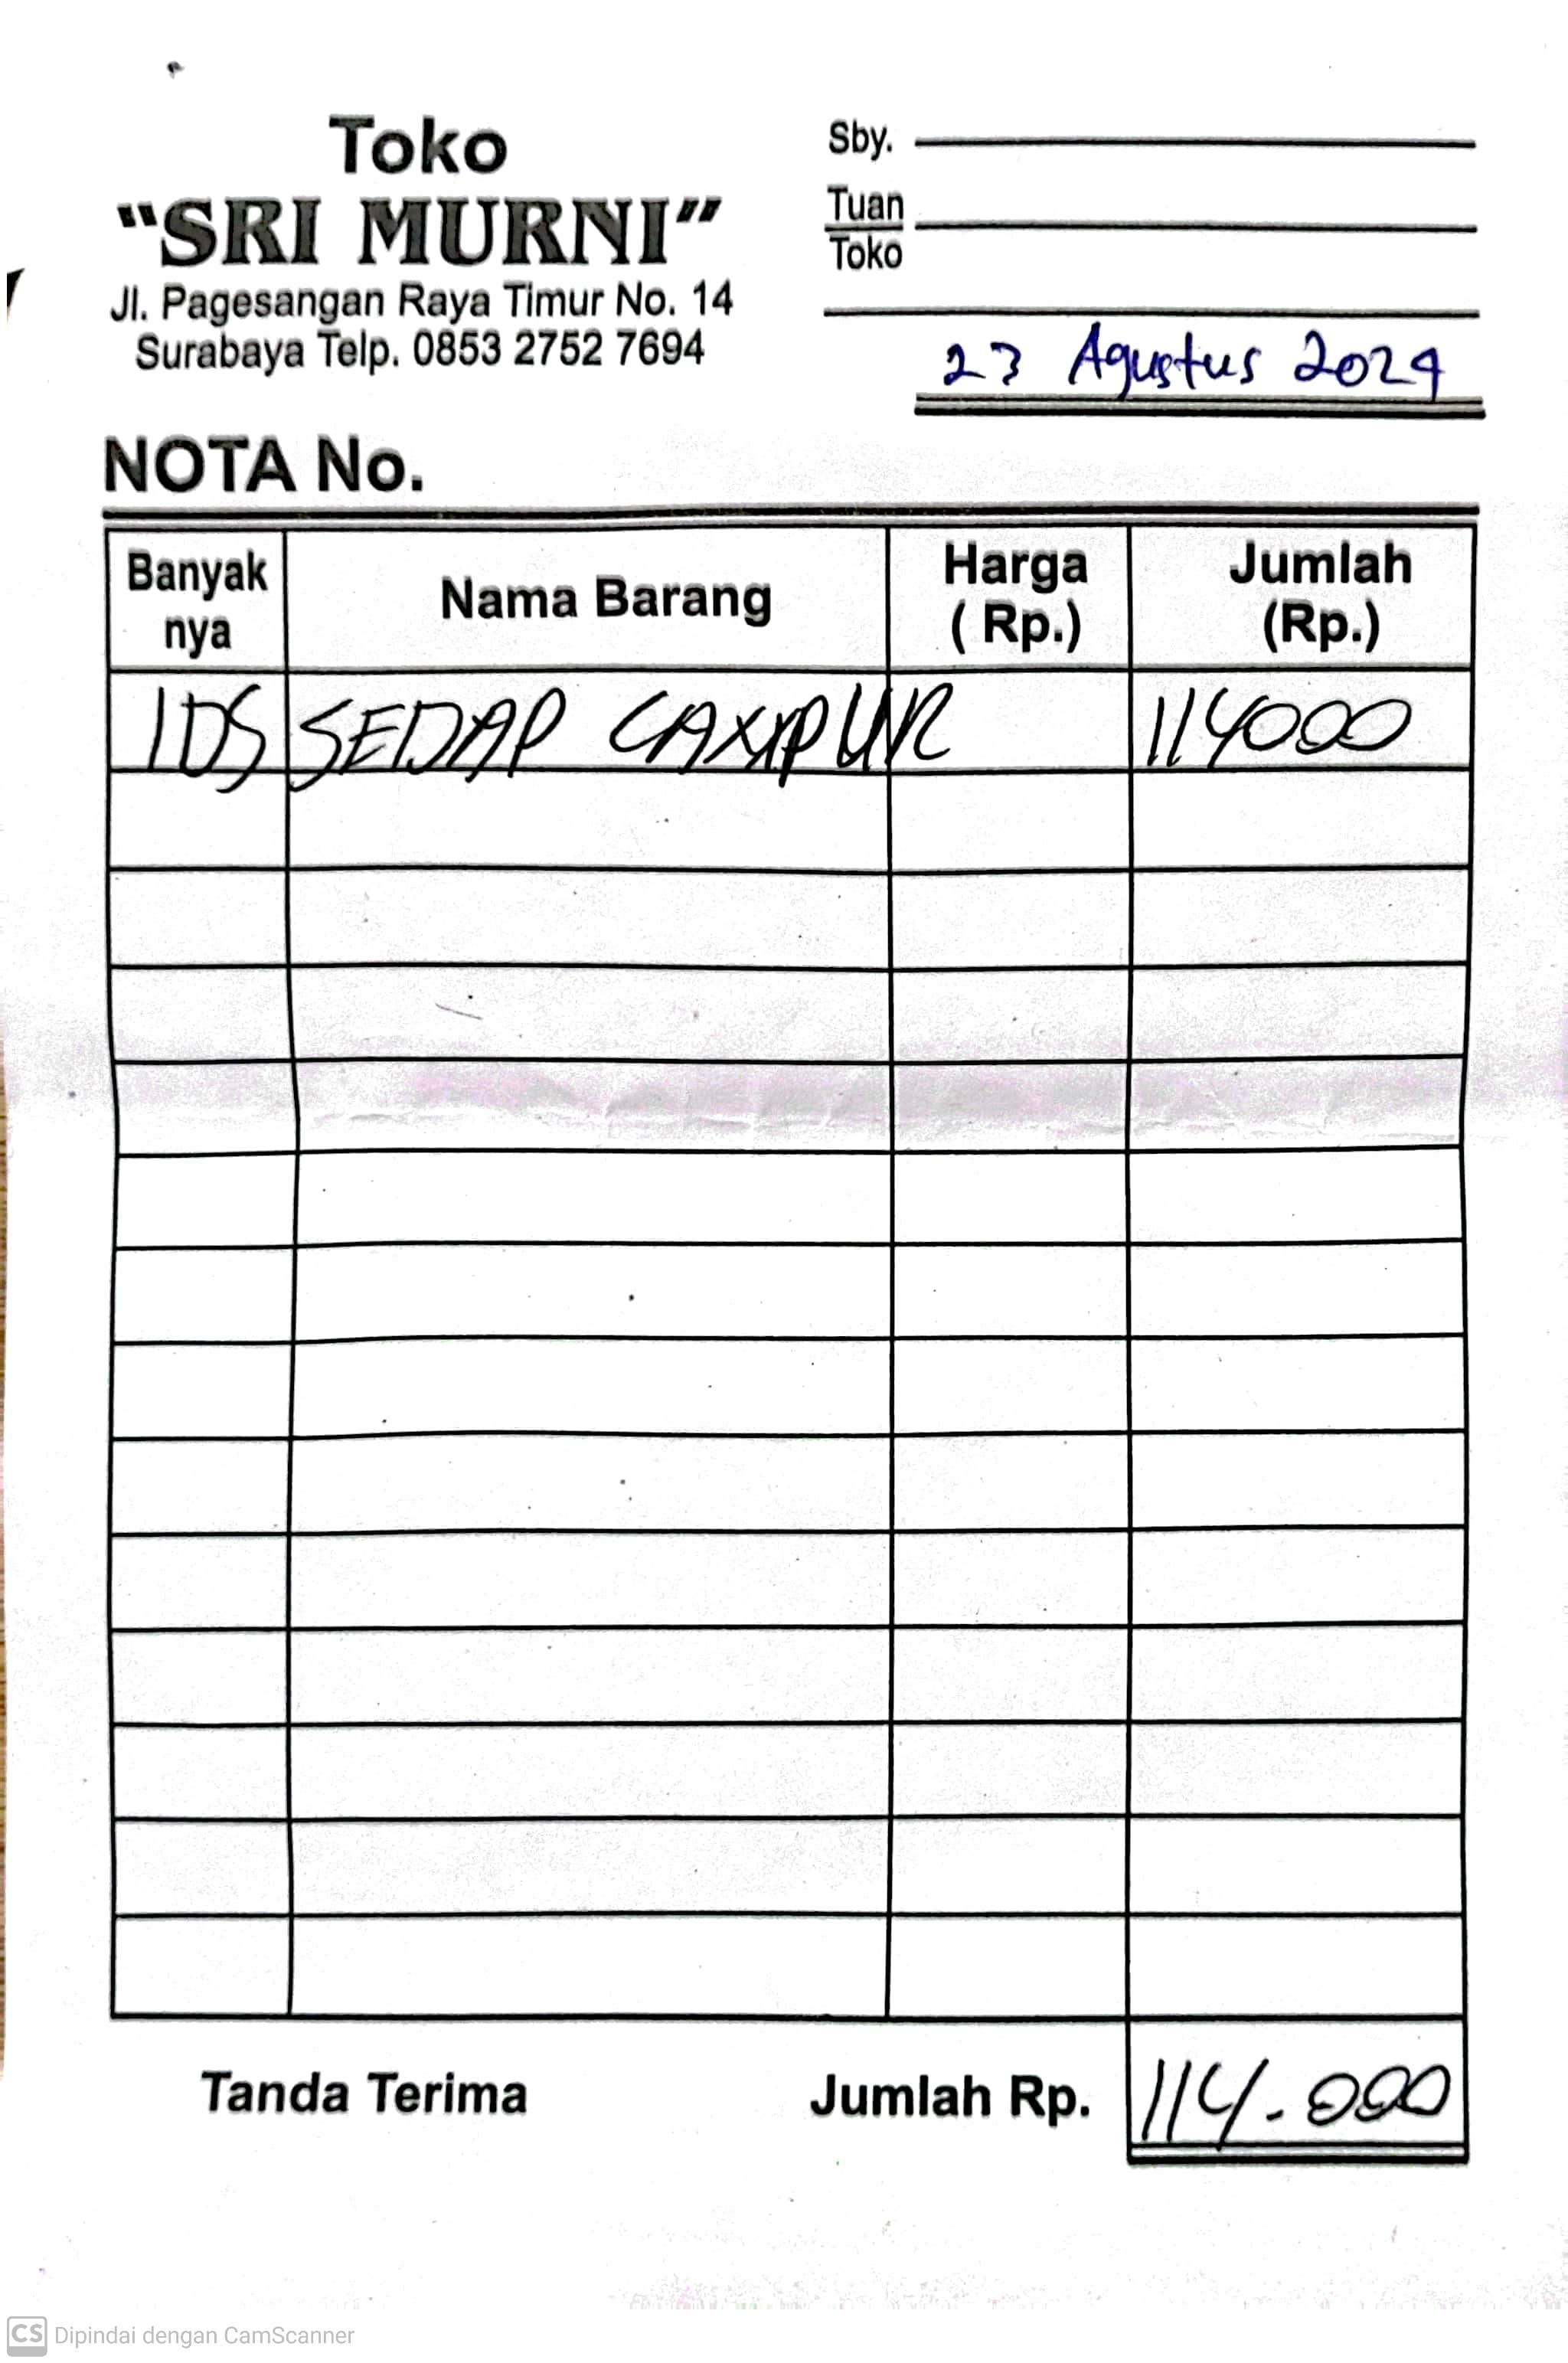 Toko
"SRI MURNI"
Jl. Pagesangan Raya Timur No. 14
Surabaya Telp. 0853 2752 7694
Sby.
Tuan
Toko
23 Agustus 2024
NOTA No.
Banyak nya Nama Barang Harga ( Rp.) Jumlah (Rp.)
1DS SEDAP CAMPUR 114000
Tanda Terima Jumlah Rp. 114.000
CS Dipindai dengan CamScanner